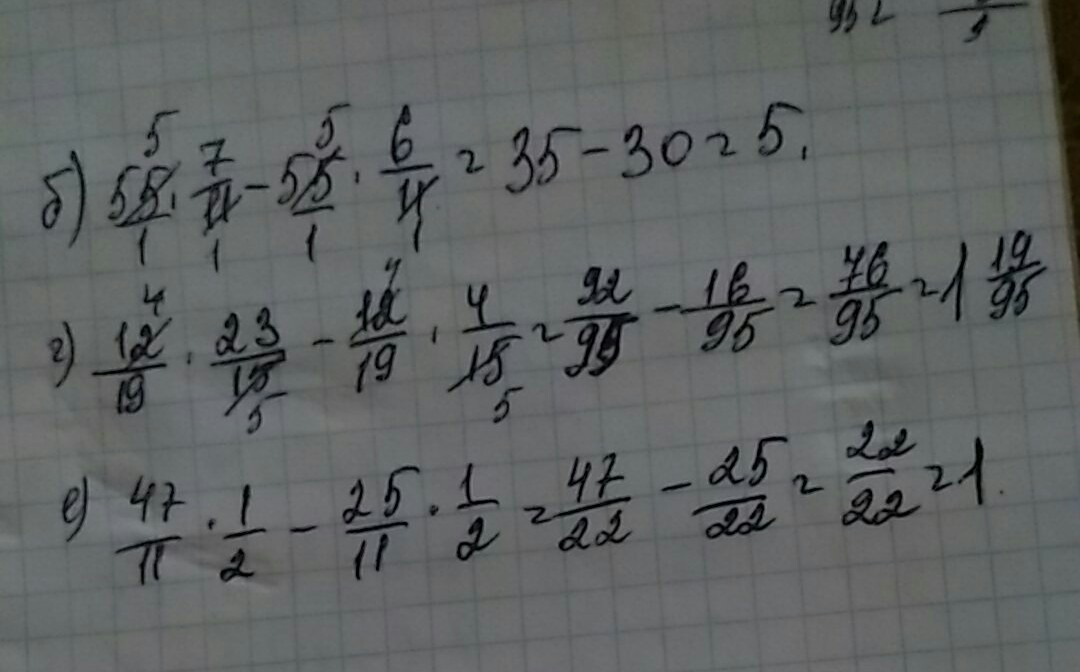 б) 55/1 · 7/11 - 55/1 · 6/11 = 35 - 30 = 5.
г) 12/19 · 23/15 - 12/19 · 4/15 = 92/95 - 16/95 = 76/95 = 1 19/95
е) 47/11 · 1/2 - 25/11 · 1/2 = 47/22 - 25/22 = 22/22 = 1.